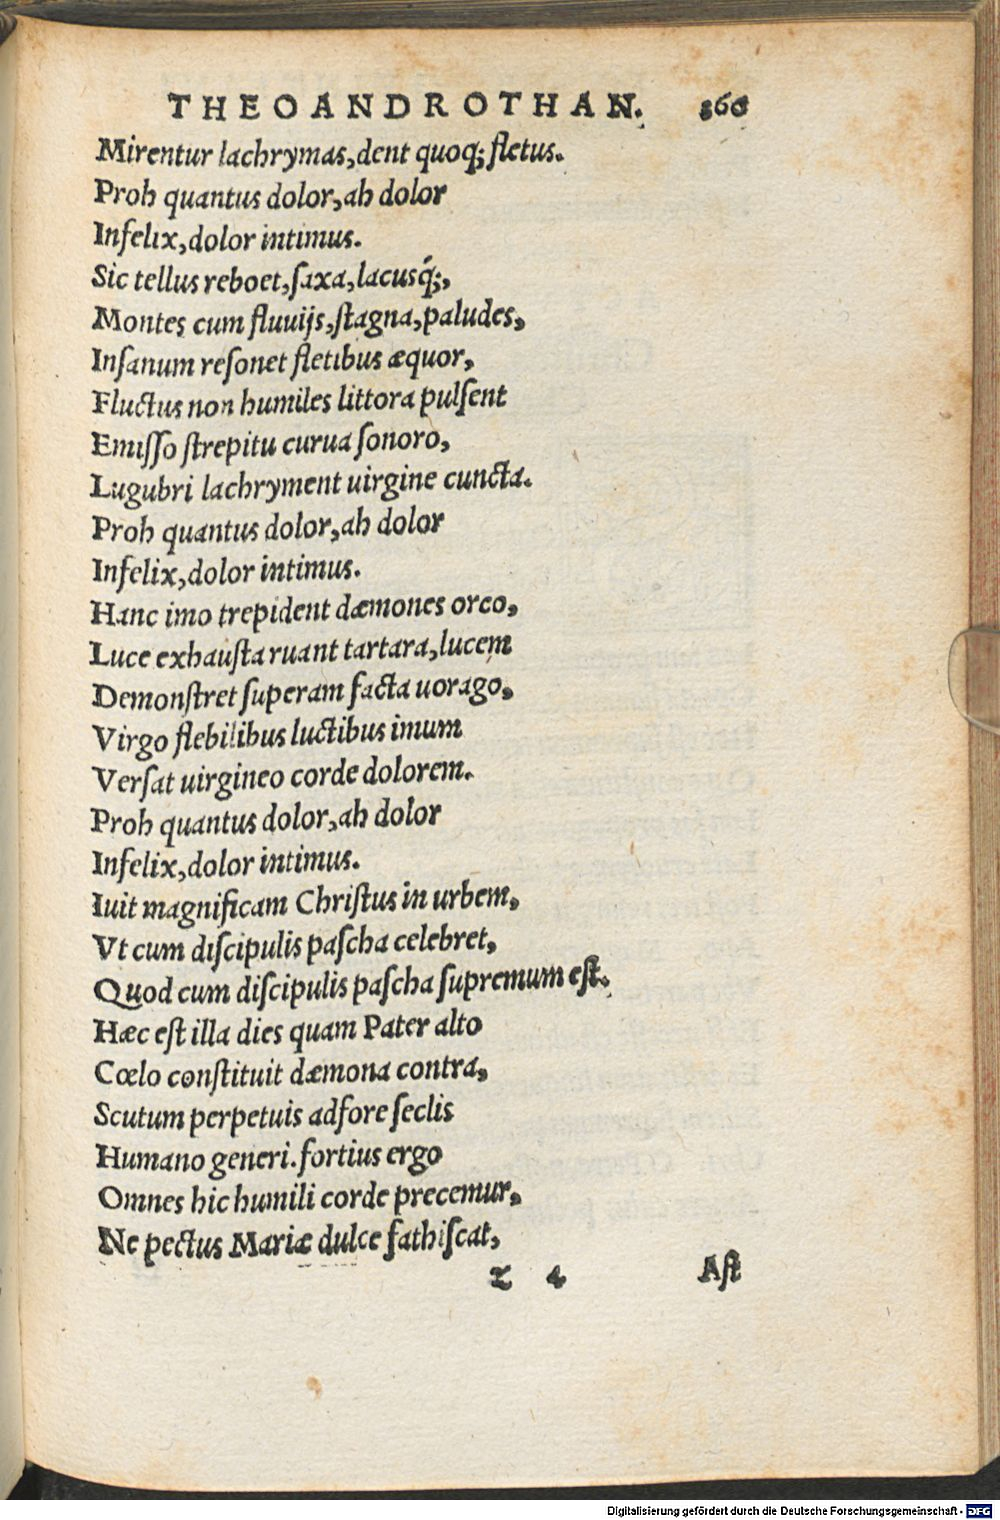 THEOANDROTHAN. 360
Mirentur lachrymas, dent quoq; fletus.
Proh quantus dolor, ah dolor
Infelix, dolor intimus.
Sic tellus reboet, ſaxa, lacusq́;,
Montes cum fluuijs, ſtagna, paludes,
Inſanum reſonet fletibus æquor,
Fluctus non humiles littora pulſent
Emiſſo ſtrepitu curua ſonoro,
Lugubri lachryment uirgine cuncta.
Proh quantus dolor, ah dolor
Infelix, dolor intimus.
Hanc imo trepident dæmones orco,
Luce exhauſta ruant tartara, lucem
Demonſtret ſuperam facta uorago,
Virgo flebilibus luctibus imum
Verſat uirgineo corde dolorem.
Proh quantus dolor, ah dolor
Infelix, dolor intimus.
Iuit magnificam Chriſtus in urbem,
Vt cum diſcipulis paſcha celebret,
Quod cum diſcipulis paſcha ſupremum eſt.
Hæc eſt illa dies quam Pater alto
Cœlo conſtituit dæmona contra,
Scutum perpetuis adfore ſeclis
Humano generi. fortius ergo
Omnes hic humili corde precemur,
Ne pectus Mariæ dulce fathiſcat,
Z 4 Aſt
Digitalisierung gefördert durch die Deutsche Forschungsgemeinschaft - DFG